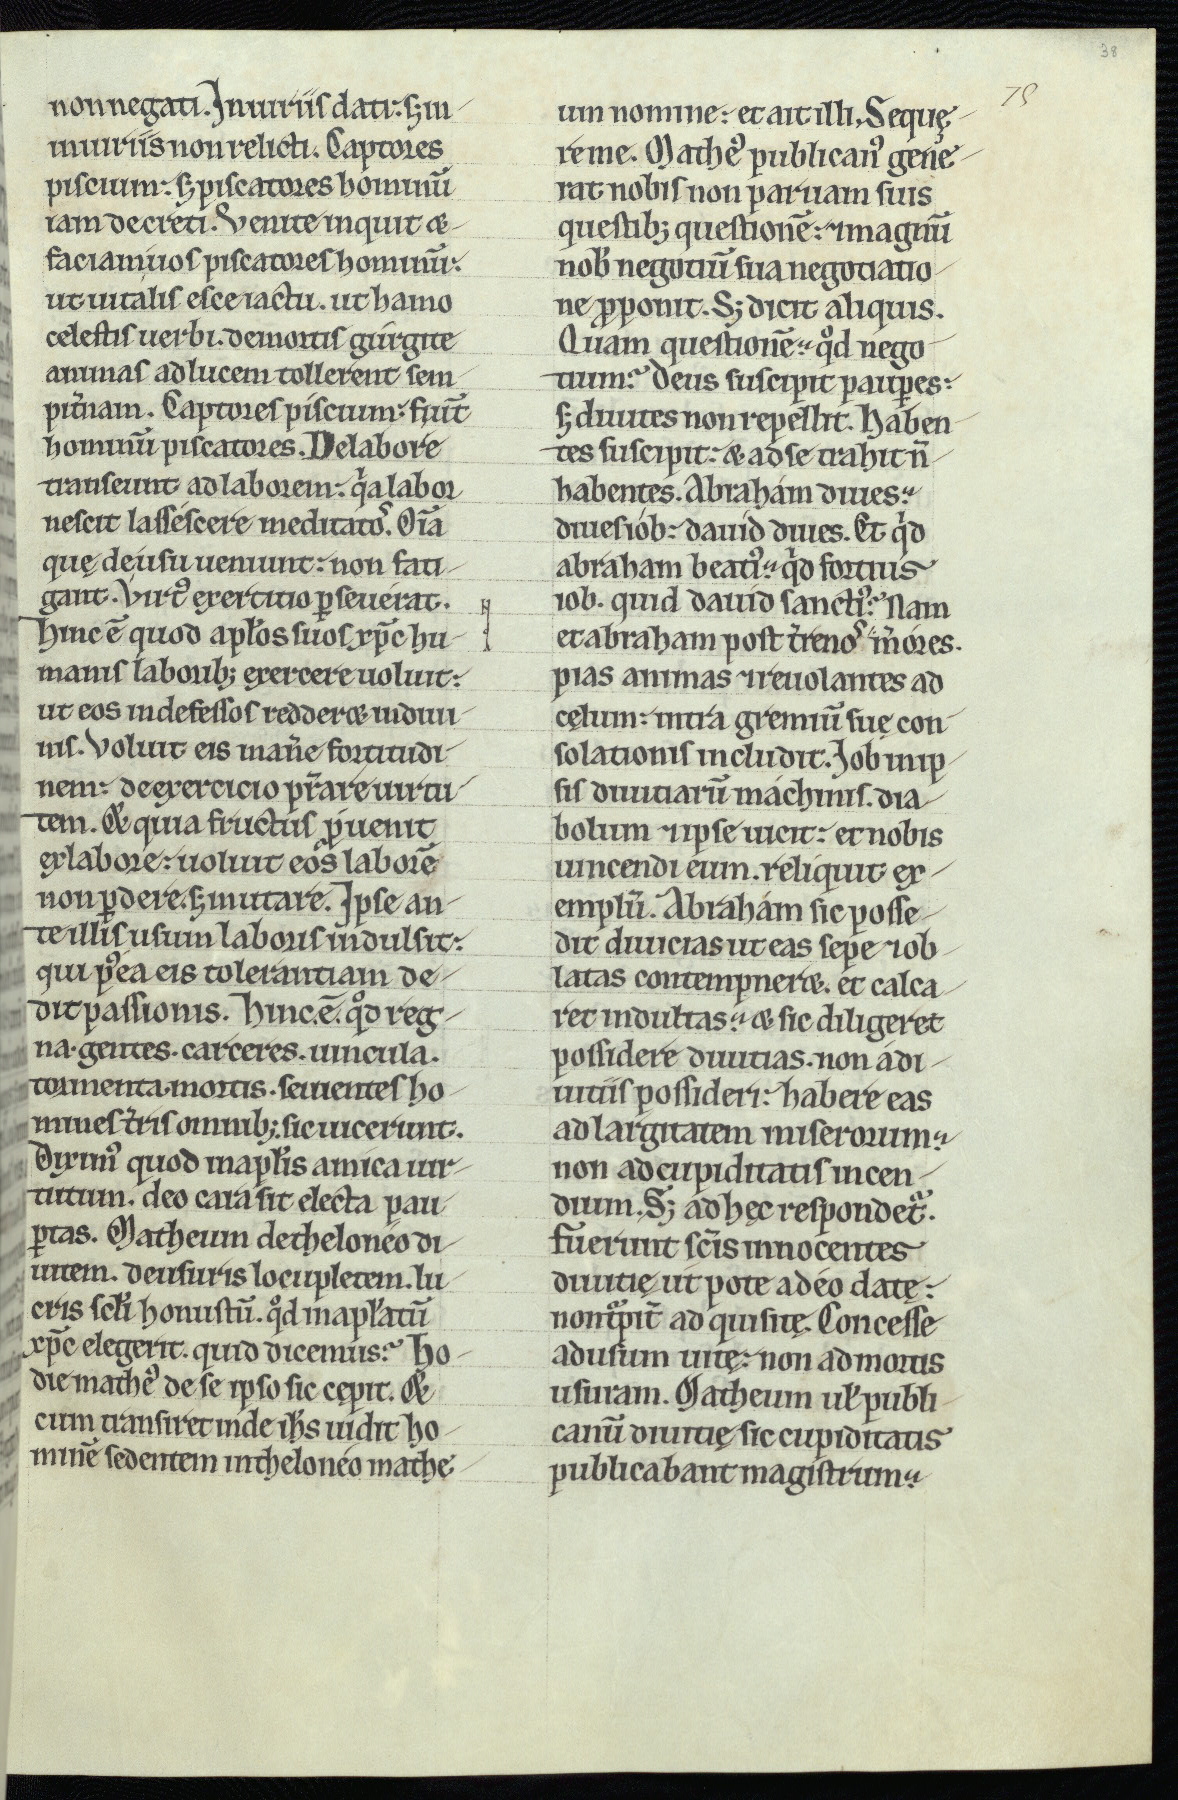 38
75
non negati. In iuuriis dati: sꝫ in
iniuriis non relicti. Captores
piscium: sꝫ piscatores hominū
iam decreti. Venite inquit &
faciam uos piscatores hominū:
ut uitalis esce iactu. ut hamo
celestis uerbi. de mortis gurgite
animas ad lucem tollerent sem
pit̄nam. Captores piscium: fiūt
hominū piscatores. De labore
transeunt ad laborem: qͥa labor
nescit lassescere meditatoˢ. Oīa
quę de usu ueniunt: non fati
gant. Virtꝰ exercitio ꝑseuerat.
Hinc ē quod apƚos suos xp̄c hu
manis laboribꝫ exercere uoluit:
ut eos indefessos redder& in diui
nis. Voluit eis man̄e fortitudi
nem: de exercicio pr̄are uirtu
tem. & quia fructus ꝓuenit
ex labore: uoluit eos laborē
non ꝑdere. sꝫ mutare. Ipse an
te illis usum laboris indulsit:
qui pꝰea eis tolerantiam de
dit passionis. Hinc. ē. qͦd reg
na. gentes. carceres. uincula.
tormenta. mortis. seuientes ho
mines t̄ris omnibꝫ. sic uicerunt.
Diximꝰ quod in apƚis amica uir
tutum. deo cara sit electa pau
ꝑtas. Matheum de theloneo di
uitem. de usuris locupletem. lu
cris scƚi honustū. qͦd in apƚatū
xp̄c elegerit. quid dicemus? Ho
die mathꝰ de se ipso sic cępit. &
cum transiret inde ihs uidit ho
minē sedentem in theloneo mathe
um nomine: et ait illi. Sequę
re me. Mathꝰ publicanꝰ gene
rat nobis non paruam suis
questibꝫ questionē: ⁊ magnū
nob negotiū sua negotiatio
ne ꝓponit. Sꝫ dicit aliquis.
Quam questionē? qͦd nego
tium? Deus suscipit pauꝑes:
sꝫ diuites non repellit. Haben
tes suscipit: & ad se trahit n̄
habentes. Abraham diues?
diues iob: dauid diues. Et qͥd
abraham beatiꝰ? qͥd fortius
iob. quid dauid sanctiꝰ? Nam
et abraham post t̄renoˢ m̄ores.
pias animas ⁊ reuolantes ad
cęlum: intra gremiū suę con
solationis includit. Iob in ip
sis diuitiarū machinis. dia
bolum ⁊ ipse uicit: et nobis
uincendi eum. reliquit ex
emplū. Abraham sic posse
dit diuicias ut eas sepe ⁊ ob
latas contempner&. et calca
ret indultas? & sic diligeret
possidere diuitias. non a di
uitiis possideri: habere eas
ad largitatem miserorum?
non ad cupiditatis incen
dium. Sꝫ ad hęc respondet᷑.
Fuerunt scīs innocentes
diuitię ut pote a deo datę:
non tͣpit̄ ad quisitę. Concesse
ad usum uitę: non ad mortis
usuram. Matheum uƚ publi
canū diuitię sic cupiditatis
publicabant magistrum?